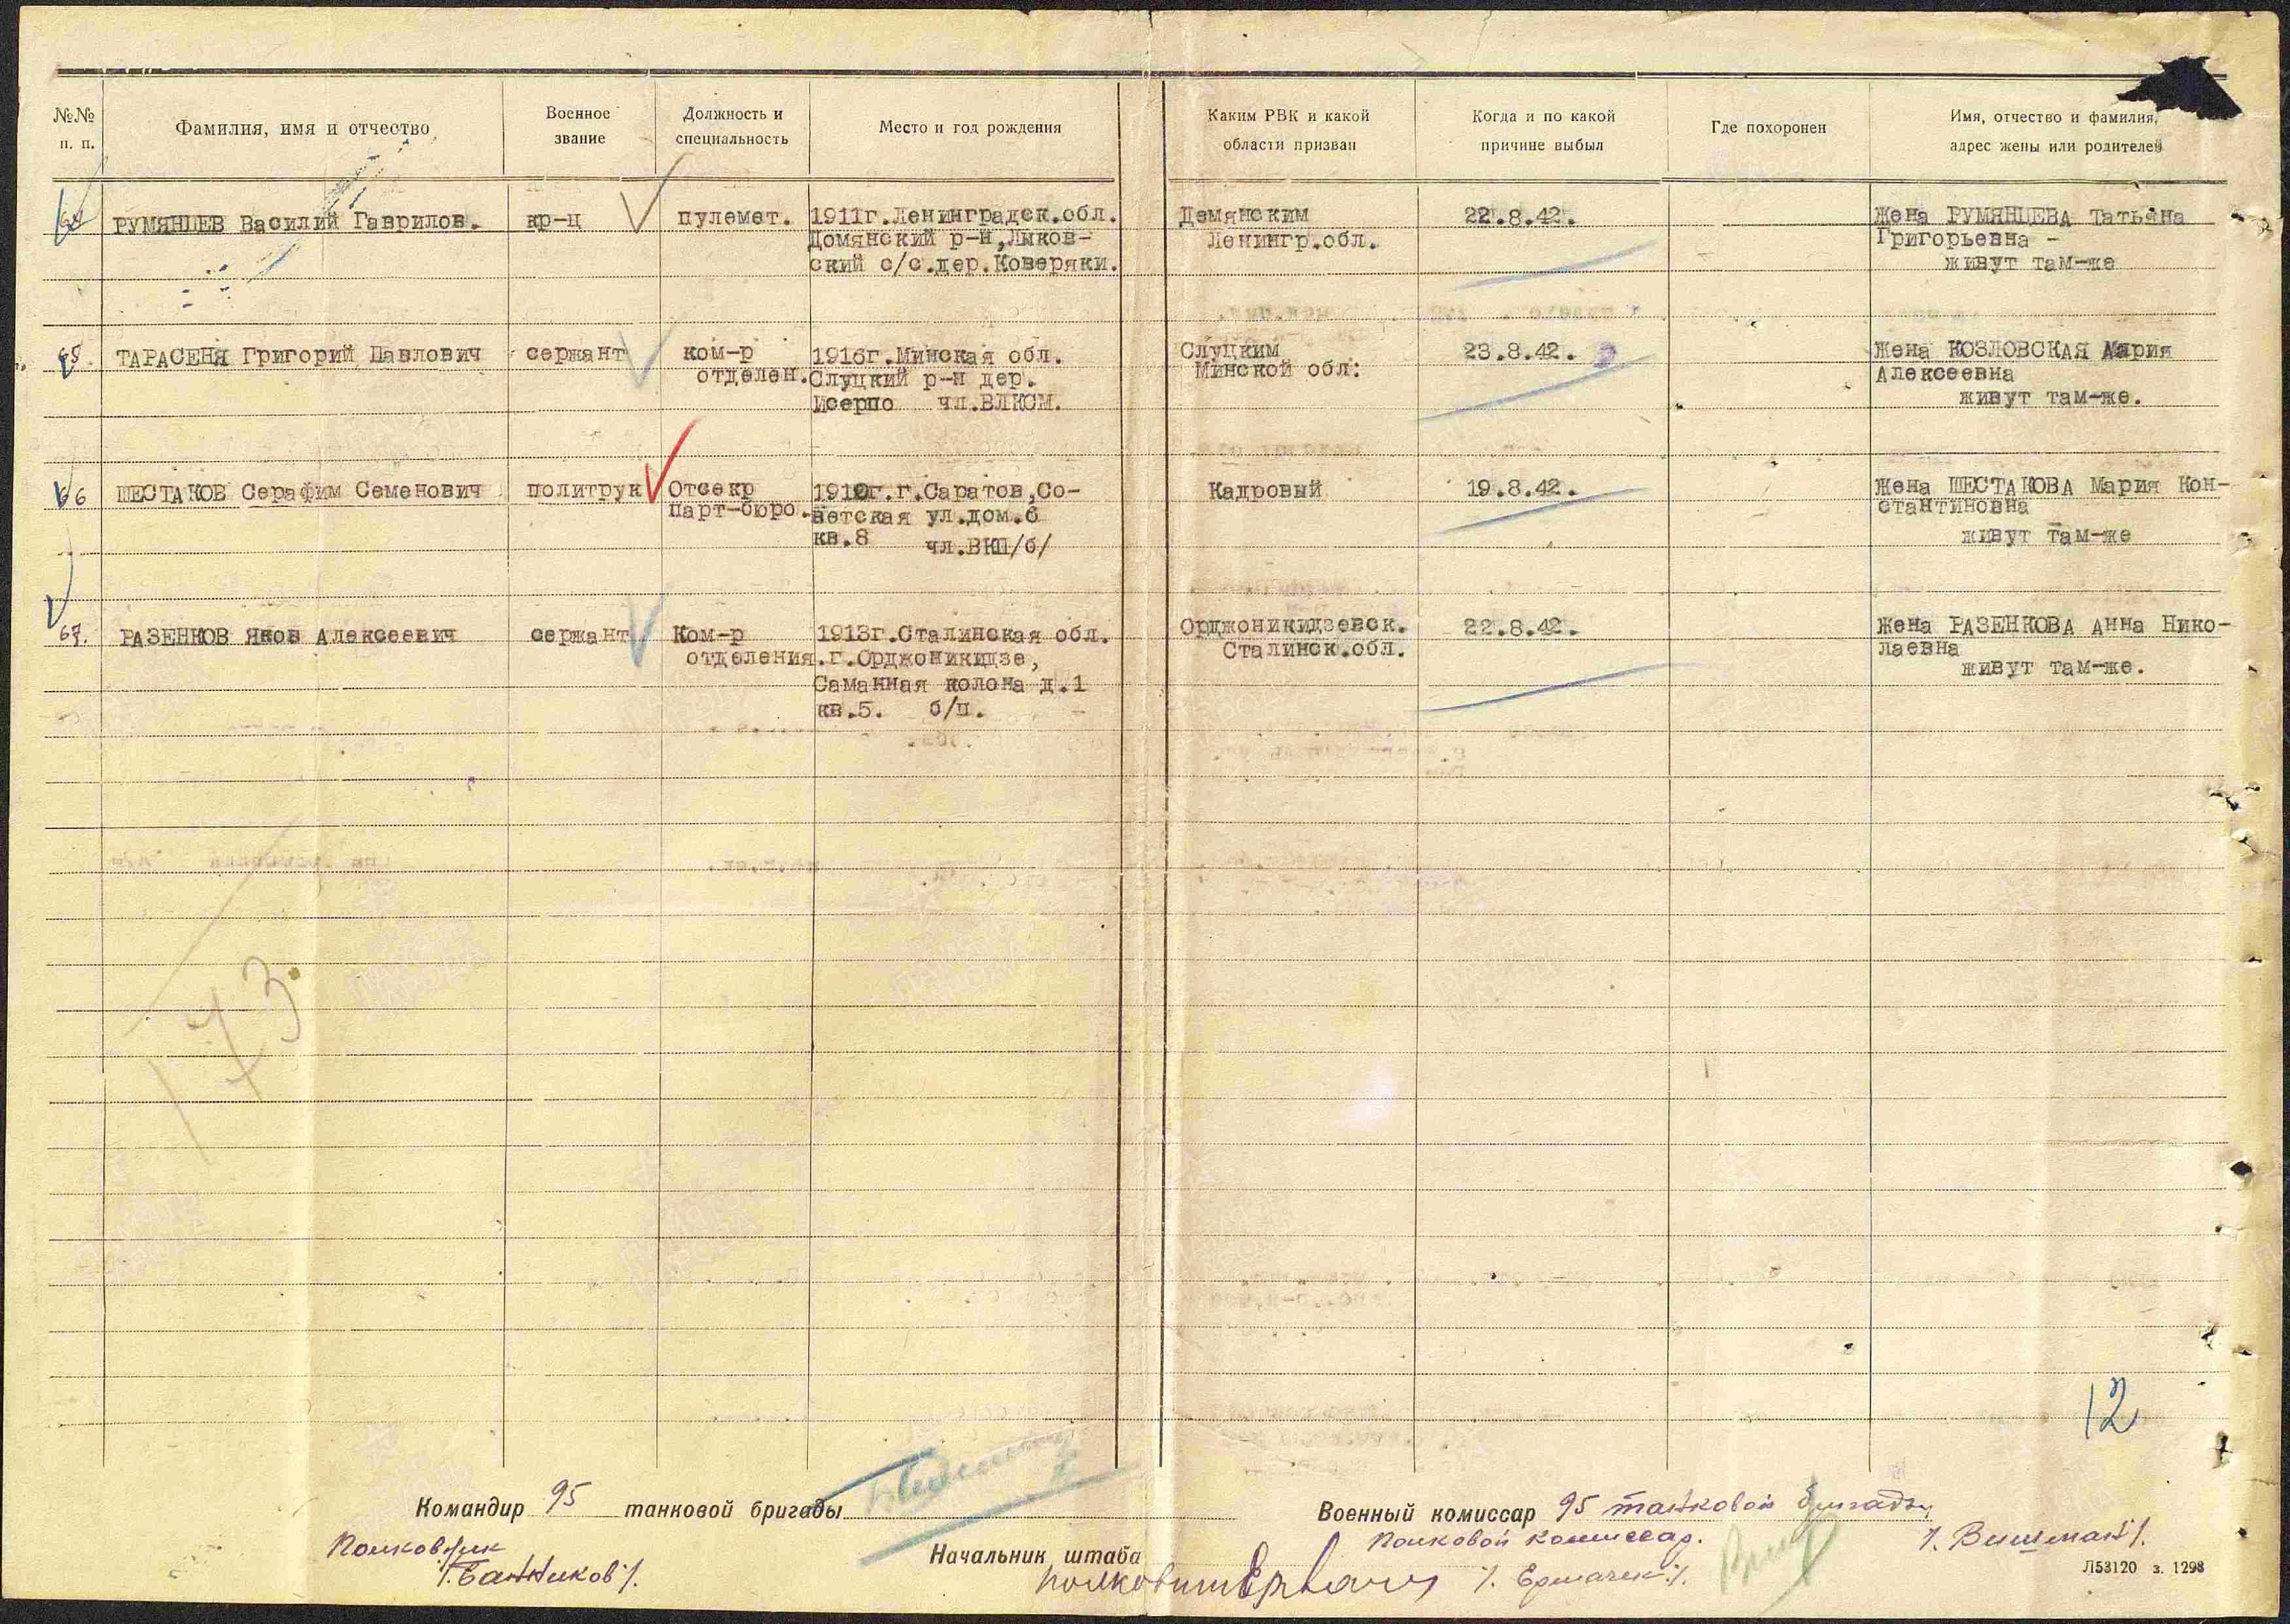 №№ п. п.
Фамилия, имя и отчество
Военное звание
Должность и специальность
Место и год рождения
Каким РВК и какой области призван
Когда и по какой причине выбыл
Где похоронен
Имя, отчество и фамилия, адрес жены или родителей
64 РУМЯНЦЕВ Василий Гаврилов. кр-ц пулемет. 1911г.Ленинградск.обл. Демянским 22.8.42. Жена РУМЯНЦЕВА Татьяна
Домянский р-н,Лыков- Ленингр.обл. Григорьевна -
ский с/с.дер.Коверяки. живут там-же
65. ТАРАСЕНЯ Григорий Павлович сержант ком-р 1916г.Минская обл. Слуцким 23.8.42. Жена КОЗЛОВСКАЯ Мария
отделен. Слуцкий р-н дер. Минской обл: Алексеевна
Исерпо чл.ВЛКСМ. живут там-же.
66 ШЕСТАКОВ Серафим Семенович политрук Отсекр 1910г.г.Саратов,Со- Кадровый 19.8.42. Жена ШЕСТАКОВА Мария Кон-
парт-бюро. ветская ул.дом.6 стантиновна
кв.8 чл.ВКП/б/ живут там-же
67. РАЗЕНКОВ Яков Алексеевич сержант Ком-р 1913г.Сталинская обл. Орджоникидзевск. 22.8.42. Жена РАЗЕНКОВА Анна Нико-
отделения. г.Орджоникидзе, Сталинск.обл. лаевна
Саманная колона д.1 живут там-же.
кв.5. б/п.
173
12
Командир 95 танковой бригады
Военный комиссар 95 танковой бригады
Полковник
Полковой комиссар.
/.Банников/.
/. Вишман/.
Начальник штаба
полковник
/. Ермачек/.
Л53120 з. 1298